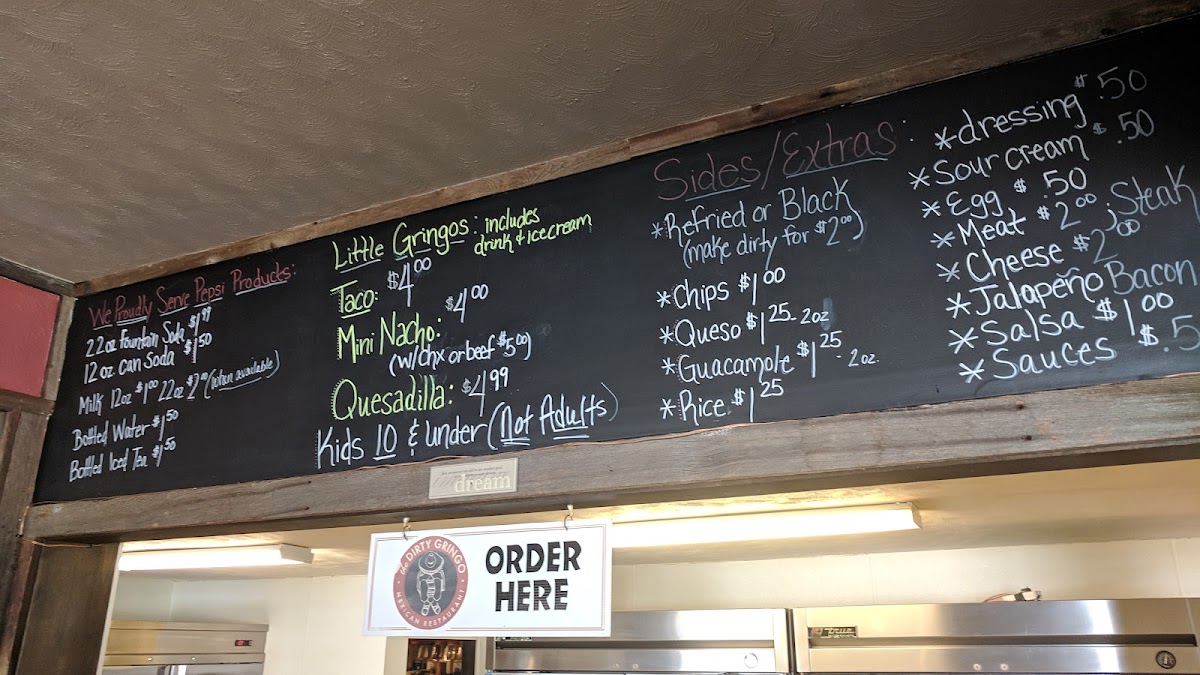 We Proudly Serve Pepsi Products:
22oz Fountain Soda $1.99
12 oz can Soda $1.50
Milk 12oz $1.00 22oz (when available)
Bottled Water $1.50
Bottled Iced Tea $1.50
Little Gringos: includes
drink & icecream
Taco: $4.00
Mini Nacho: $4.00
(w/chx or beef $5.00)
Quesadilla: $4.99
Kids 10 & under (Not Adults)
Sides/Extras:
*Refried or Black
(make dirty for $2.00)
*Chips $1.00
*Queso $1.25 - 2oz
*Guacamole $1.25 - 2oz.
*Rice $1.25
*dressing $.50
*Sour cream $.50
*Egg $.50
*Meat $2.00; Steak
*Cheese $2.00
*Jalapeño Bacon
*Salsa $1.00
*Sauces $.5
dream
the DIRTY GRINGO
MEXICAN RESTAURANT
ORDER
HERE
true